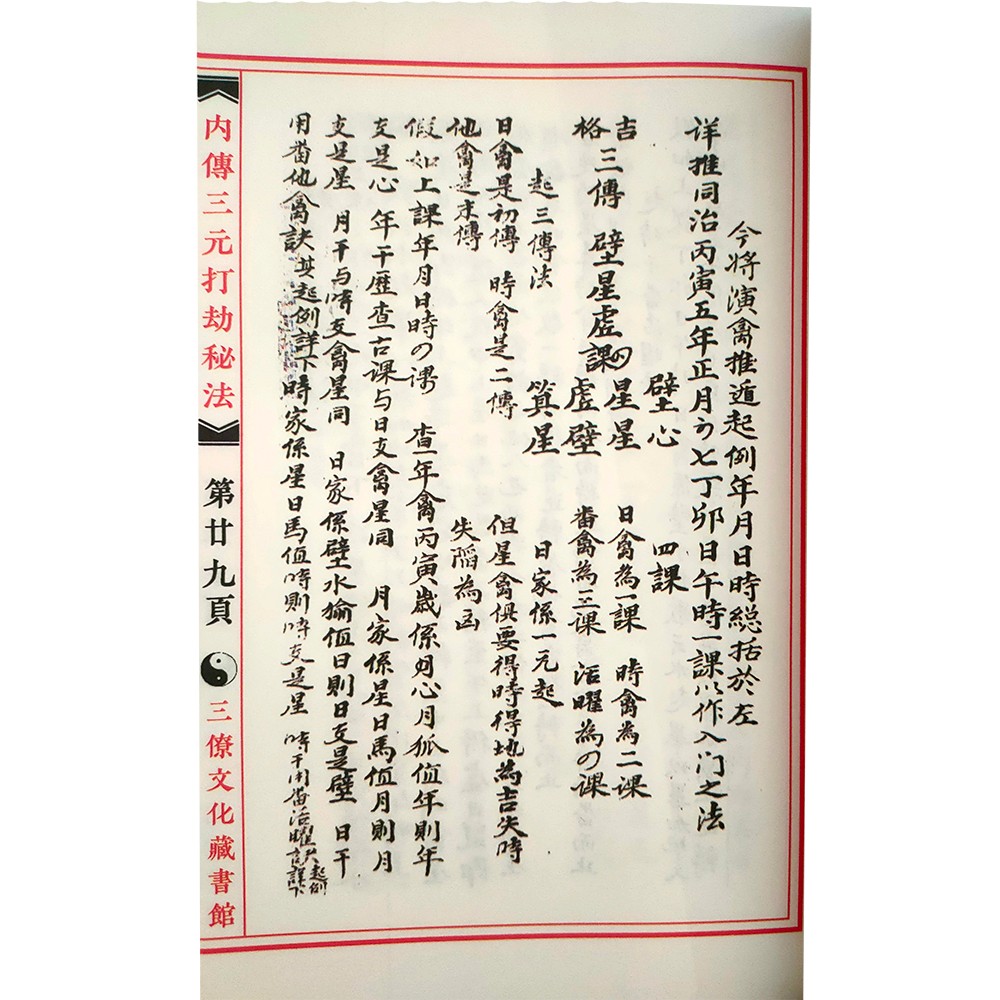 今将演禽推遁起例年月日時総括於左
详推同治丙寅五年正月初七丁卯日午時一課以作入门之法
壁心 四課
吉 星星 日禽為一課 時禽為二课
格 三傳 壁星虚課 虚壁 番禽為三课 活曜為の课
起三傳法 箕星 日家係一元起
日禽是初傳 時禽是二傳 但星禽俱要得時得地為吉失時
他禽是末傳 失陷為凶
假如上課年月日時の课 查一年禽丙寅歲係心月狐值年則年
支是心 年干歷查古课与日支禽星同 月家係星日馬值月則月
支是星 月干与時支禽星同 日家係壁水㺄值日則日支是壁 日干
用番他禽訣其起例詳下 時家係星日馬值時則時支是星 時干用番活曜訣起例詳下
内傳三元打劫秘法
第廿九頁
三僚文化藏書館